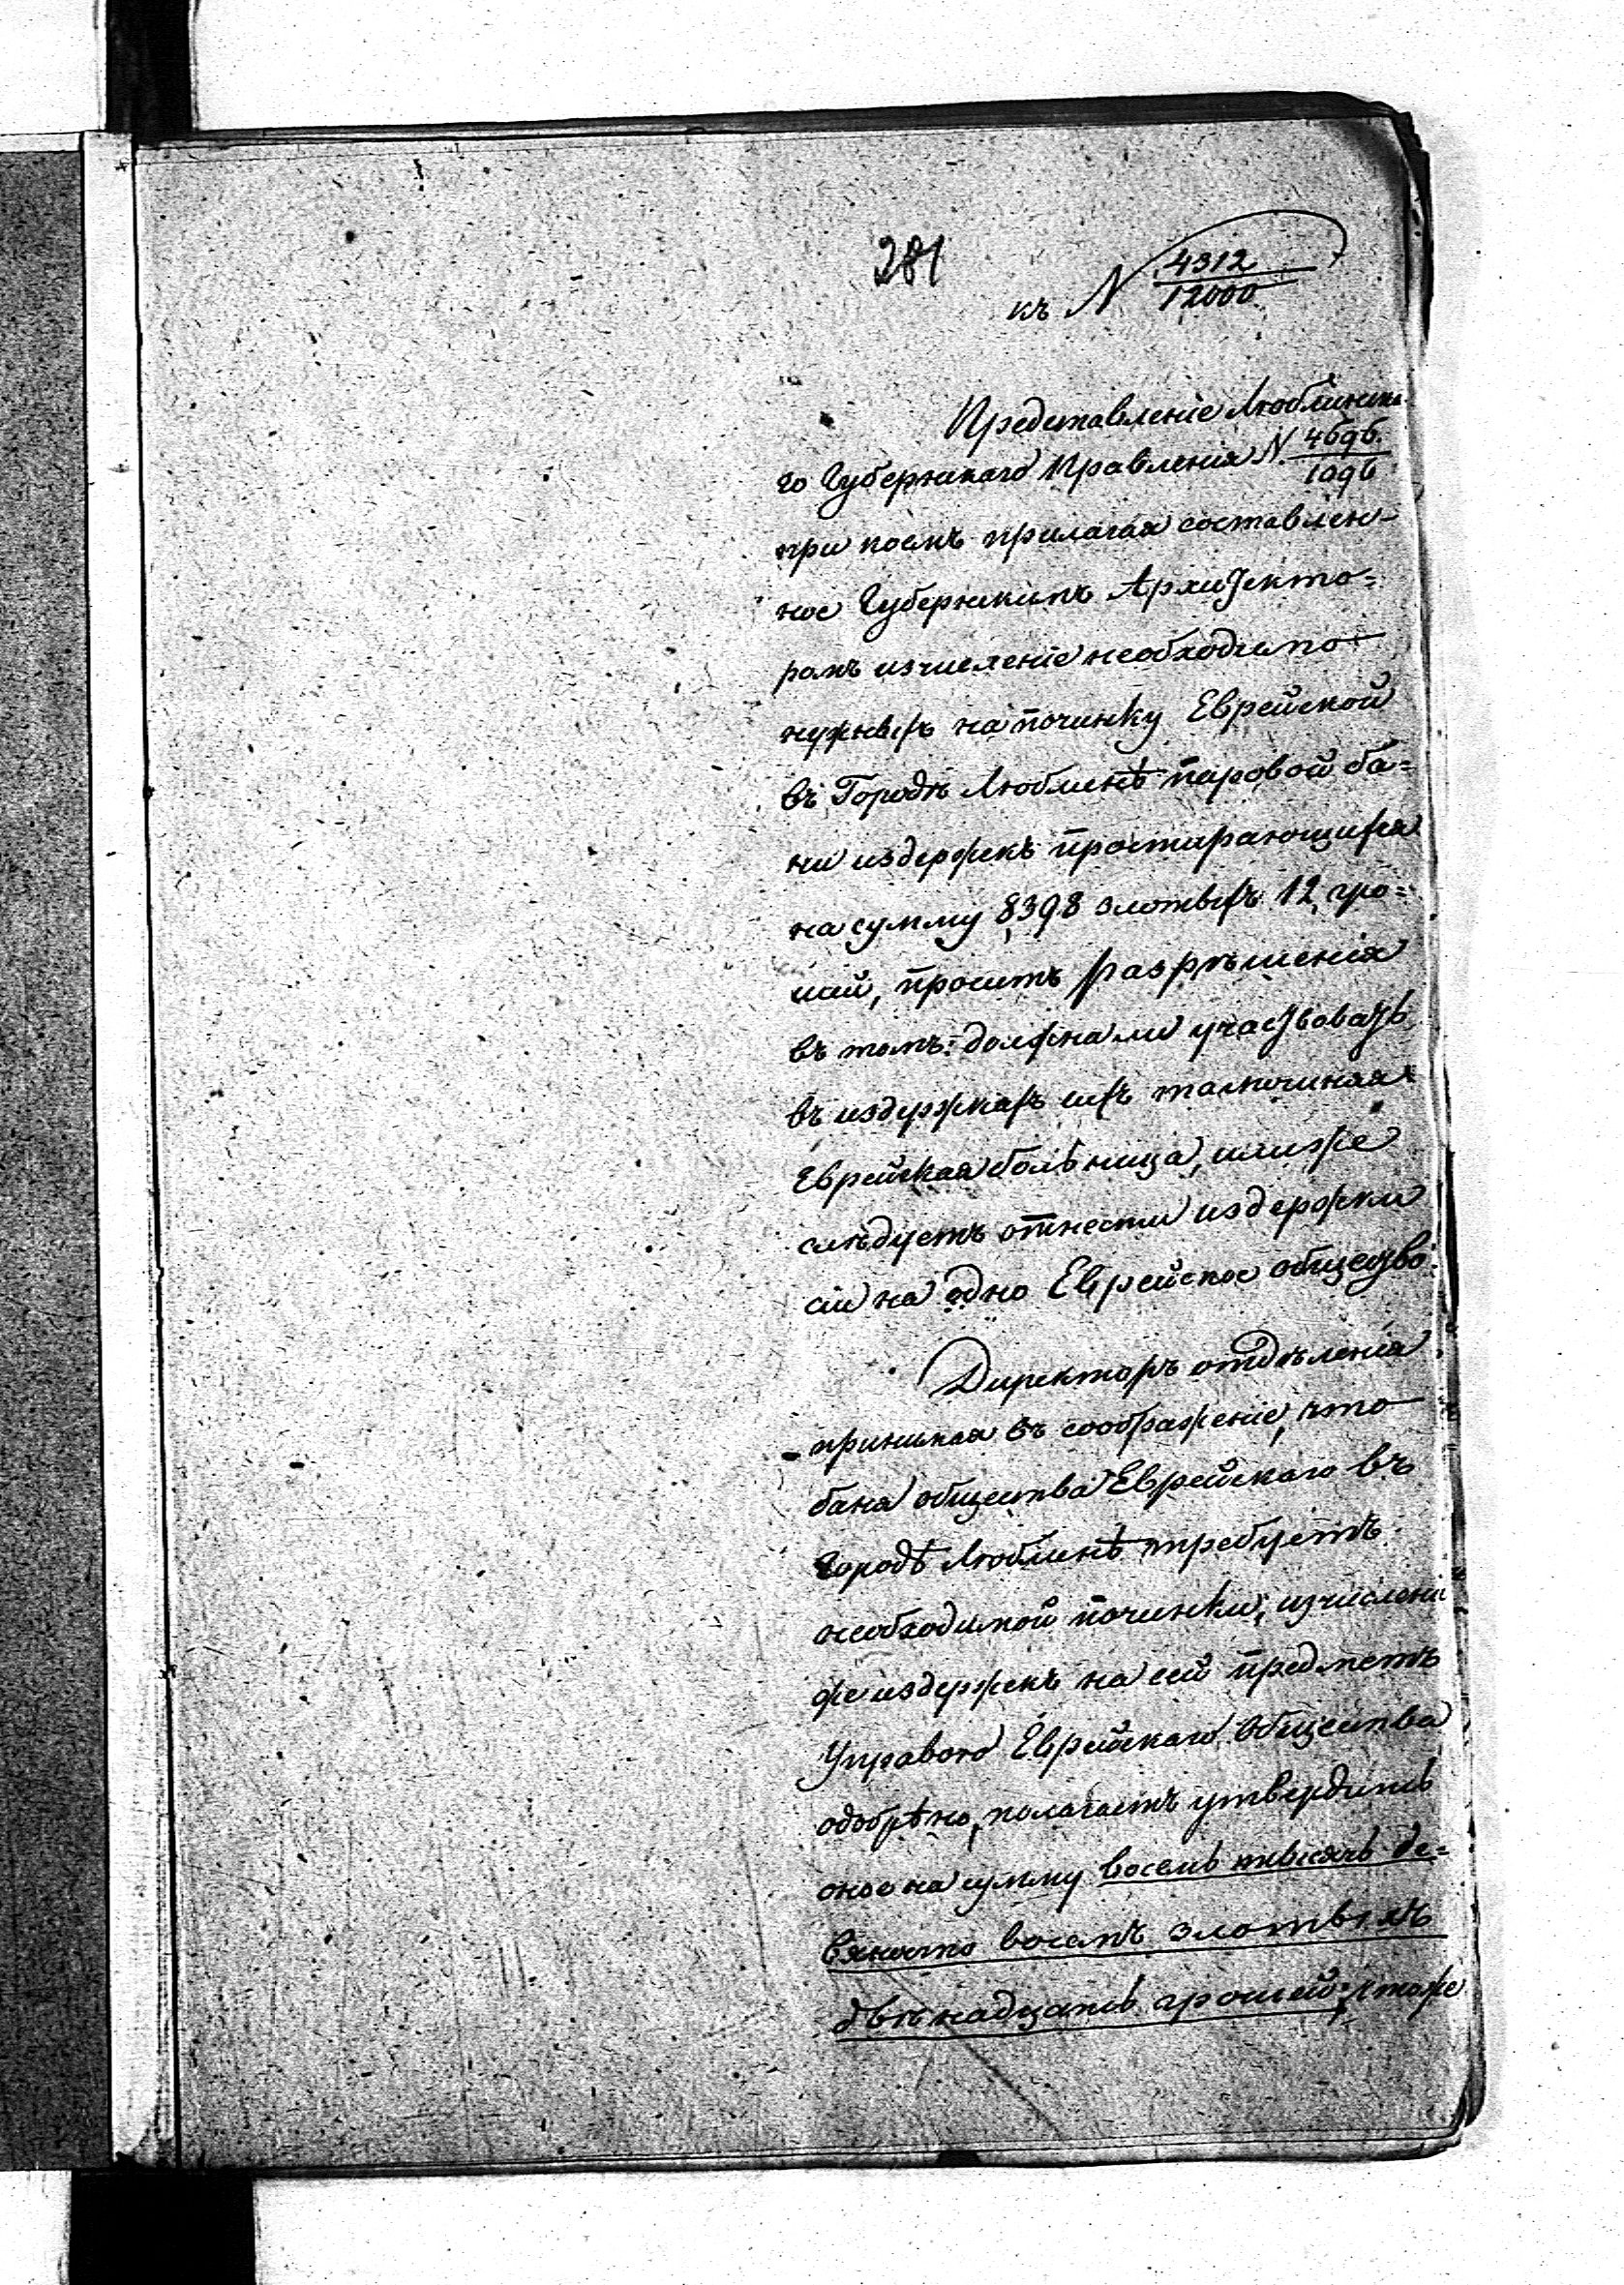 281
къ N 4312/12000
Представленіе Люблинска
го Губернскаго Правленія N. 4696./1096
при коемъ прилагая составлен-
ное Губернскимъ Архитекто=
ромъ изчисленіе необходимо
нужныхъ на починку Еврейской
въ Городѣ Люблинѣ паровой ба=
ни издержекъ простирающихся
на сумму 8398 злотыхъ 12 гро=
шей, проситъ разрѣшенія
въ томъ: должна ли участвовать
въ издержкахъ сихъ тамошняя
Еврейская больница, или же
слѣдуетъ отнести издержки
сіи на одно Еврейское общество.
Директоръ отдѣленія
принимая въ соображеніе, что
баня общества Еврейскаго въ
городѣ Люблинѣ требуетъ
необходимой починки, изчисленіе
же издержекъ на сей предметъ
Управою Еврейскаго общества
одобрѣно, полагаетъ утвердить
оное на сумму восемь тысячь де=
вяносто восемъ злотыхъ
двѣнадцать грошей; тоже